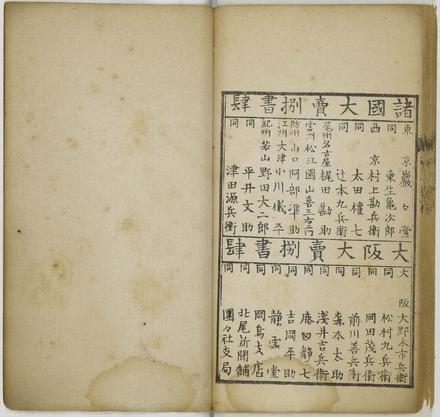 諸國大賣捌書肆
東京 巖々堂
同 東生亀次郎
西京 村上勘兵衛
同 太田權七
同 辻本九兵衛
尾州名古屋 梶田勘助
雲州松江 園山喜三右衛門
防州山口 阿部準助
江州大津 小川儀平
紀州若山 野田大二郎
同 平井文助
同 津田源兵衛
大阪大賣捌書肆
大阪 大野木市兵衛
同 松村九兵衛
同 岡田茂兵衛
同 前川善兵衛
同 森本太助
同 淺井吉兵衛
同 鹿田靜七
同 吉岡平助
同 靜雲堂
同 岡島支店
同 北尾新聞舗
同 團々社支局